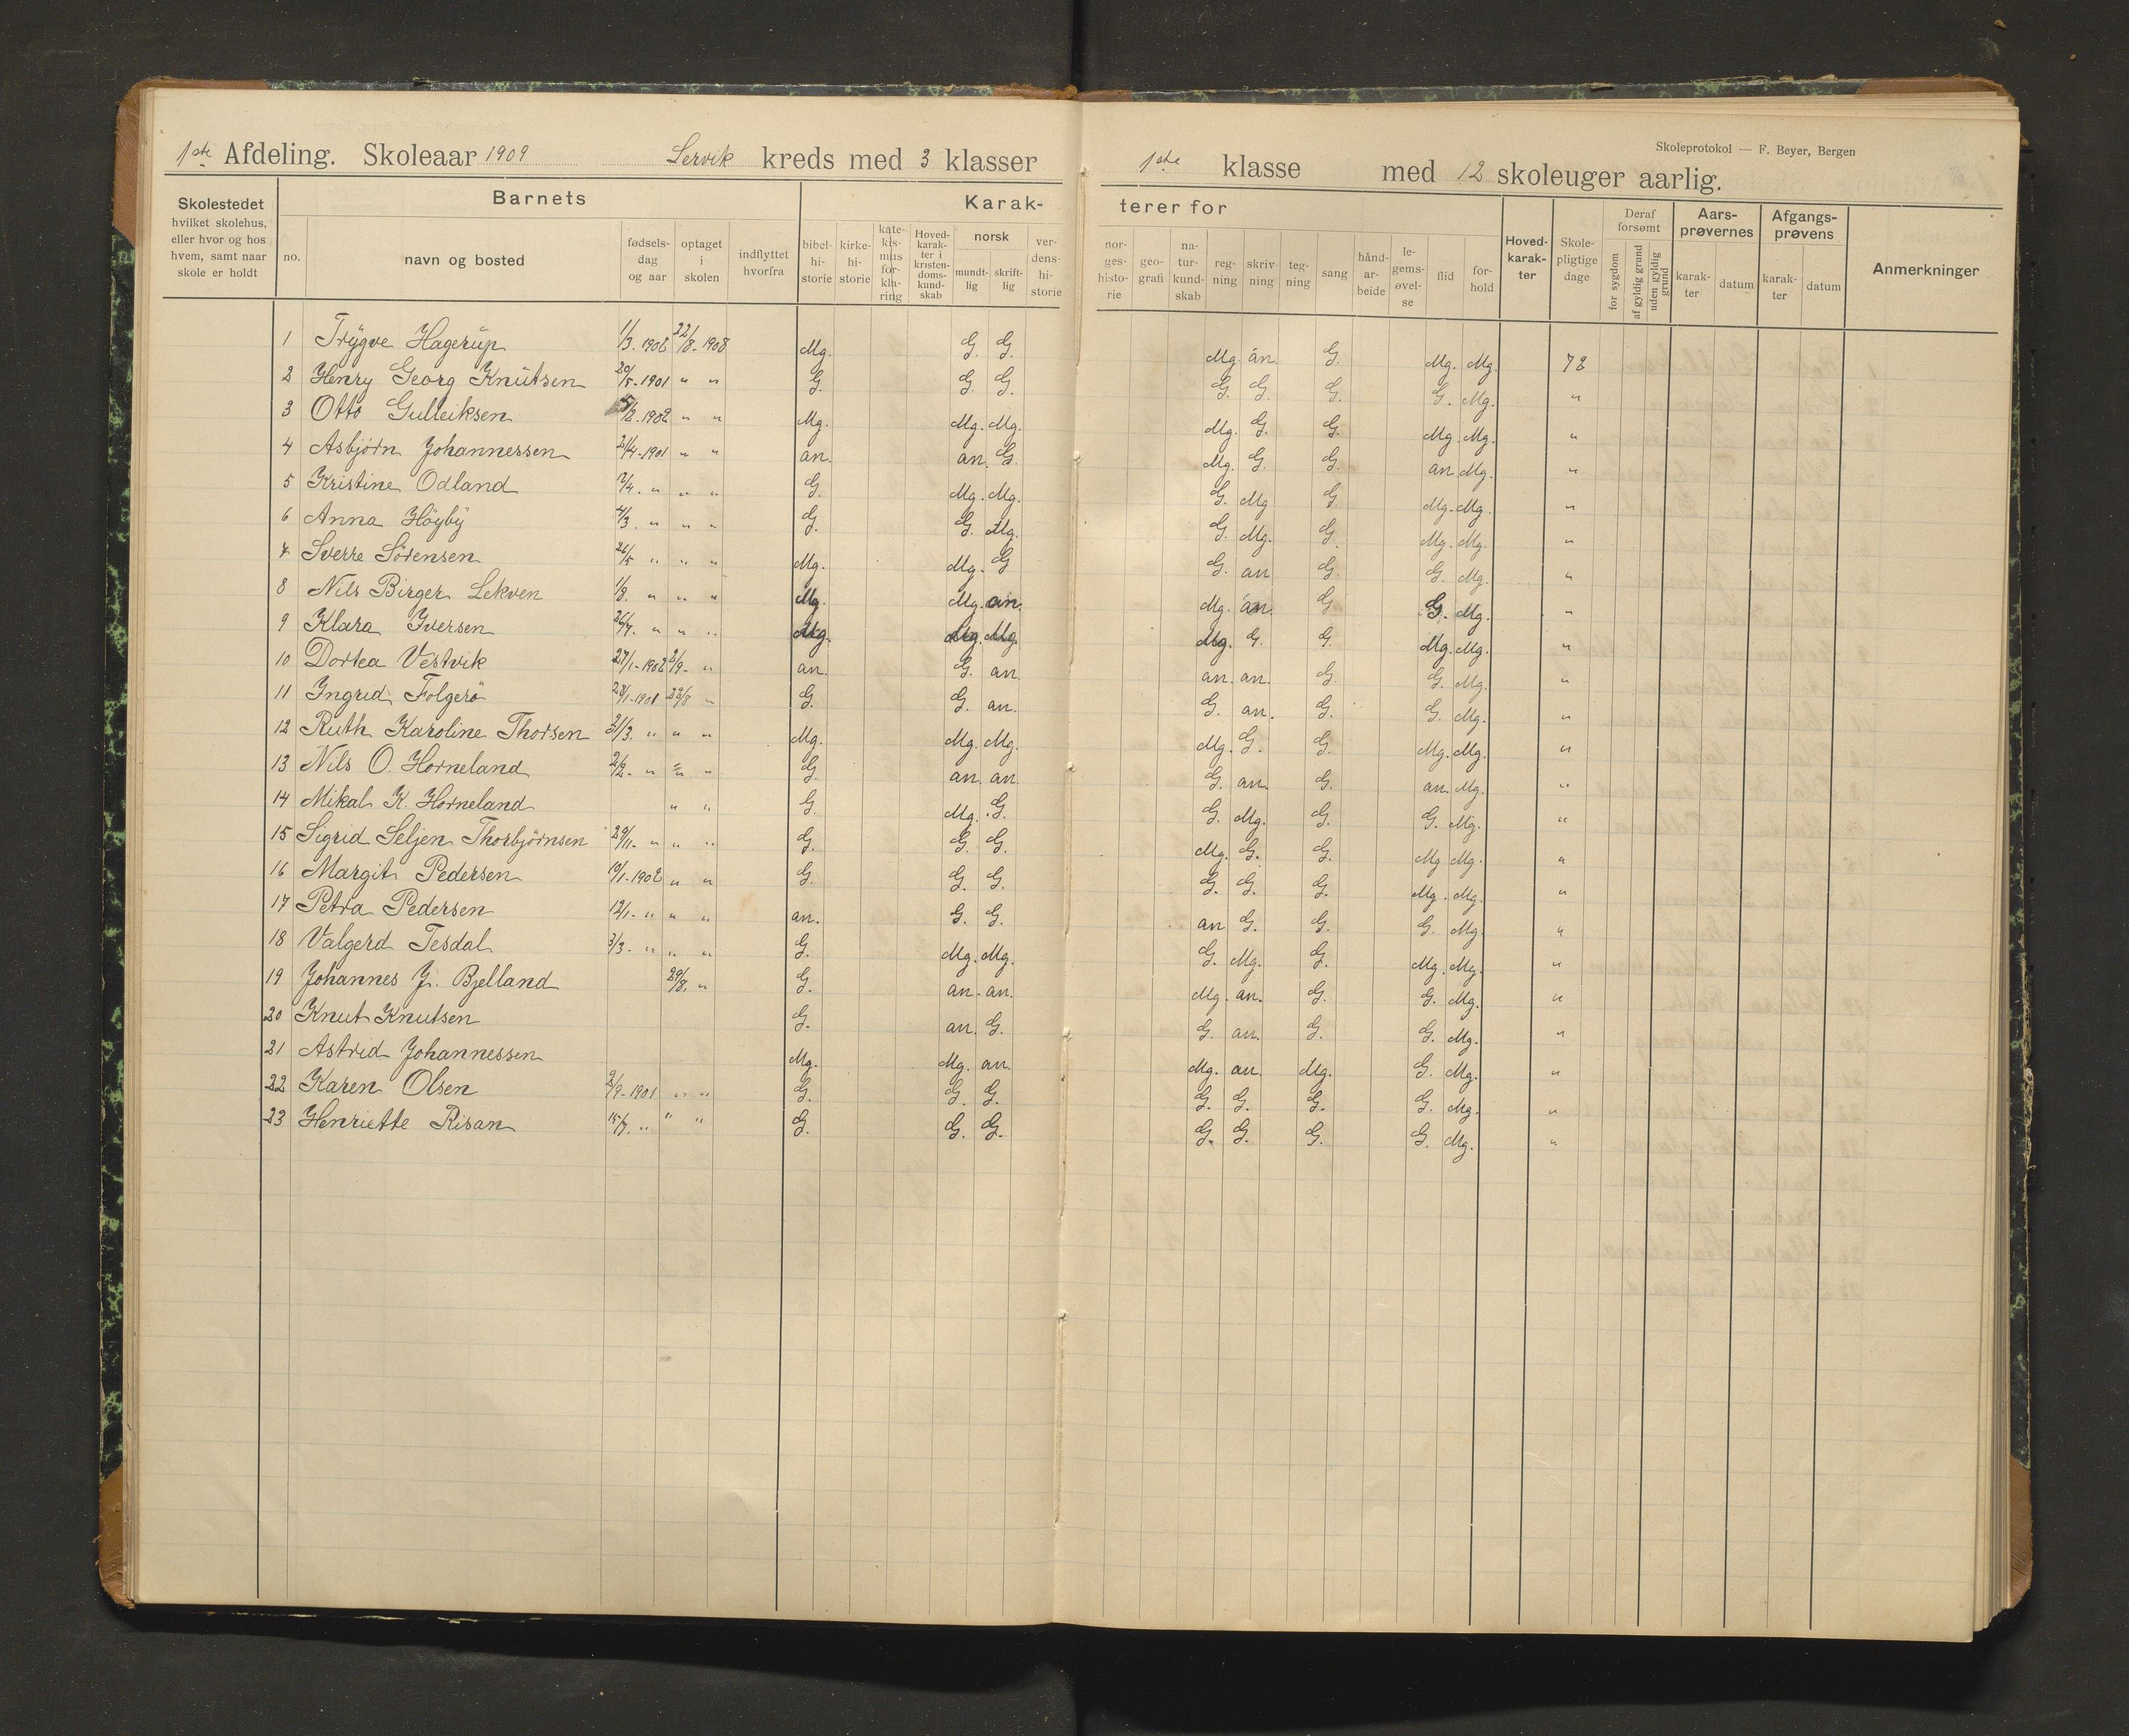 1ste Afdeling. Skoleaar 1909 Lervik kreds med 3 klasser
1ste klasse med 12 skoleuger aarlig.
Skoleprotokol — F. Beyer, Bergen
Skolestedet hvilket skolehus, eller hvor og hos hvem, samt naar skole er holdt
Barnets
no. navn og bosted fødsels-dag og aar optaget i skolen indflyttet hvorfra
Karak-
bibel-hi-storie kirke-hi-storie kate-kis-mus for-kla-ring Hoved-karak-ter i kristen-doms-kund-skab norsk mundt-lig skrift-lig ver-dens-hi-storie
terer for
nor-ges-histo-rie geo-grafi na-tur-kund-skab reg-ning skriv-ning teg-ning sang hånd-ar-beide le-gems-øvel-se flid for-hold
Hoved-karak-ter Skole-pligtige dage Deraf forsømt for sygdom af gyldig grund uden gyldig grund Aars-prøvernes karak-ter datum Afgangs-prøvens karak-ter datum Anmerkninger
1 Trygve Hagerup 1/3-1902 22/8-1908 Mg. G. G. Mg. an. G. Mg. Mg. 72
2 Henry Georg Knutsen 20/5-1901 " " G. G. G. G. G. G. G. Mg. "
3 Otto Gulleiksen 5/2-1902 " " Mg. Mg. Mg. Mg. G. G. Mg. Mg. "
4 Asbjørn Johannessen 21/4-1901 " " an. an. G. Mg. G. G. an. Mg. "
5 Kristine Odland 2/4. " " " G. Mg. Mg. G. Mg G. Mg. Mg. "
6 Anna Høyby 4/3. " " " G. G. Mg. G. Mg. G. Mg. Mg. "
7 Sverre Sørensen 26/5 " " " Mg. Mg. G G. an G. G. Mg. "
8 Nils Birger Lekven 1/8. " " " Mg. Mg. an. Mg. an. G G. Mg. "
9 Klara Iversen 26/7. " " " Mg. Mg. Mg. Mg. G. G. Mg. Mg. "
10 Dortea Vestvik 27/1-1902 2/9- " an. G. an an. an. G. G. Mg. "
11 Ingrid Folgerø 28/1-1901 22/8 " G. G. an. G. an. G. G. Mg. "
12 Ruth Karoline Thorsen 31/3. " " " Mg. Mg. Mg. Mg. G. G. Mg. Mg. "
13 Nils O. Horneland 2/2- " " " G. an. an. G. an. G. an. Mg. "
14 Mikal K. Horneland " " G. Mg. G. G. Mg. G. G. Mg. "
15 Sigrid Seljen Thorbjørnsen 29/11- " " " G. G. G. Mg. G. G. Mg Mg. "
16 Margit Pedersen 10/1-1902 " " G. G. G. G. G. G. Mg. Mg. "
17 Petra Pedersen 12/1- " " " an. G. G. an G. G. G. Mg. "
18 Valgerd Tesdal 3/3- " " " G. Mg. Mg. G. Mg. G. Mg. Mg. "
19 Johannes J. Bjelland 29/8. " G. an. an. Mg. an. G. G. Mg. "
20 Knut Knutsen G. an. G. G. an. G. G. Mg. "
21 Astrid Johannessen Mg. Mg. an. Mg. an. Mg. G. Mg. "
22 Karen Olsen 2/9-1901 " " G. G. G. G. G. G. G. Mg. "
23 Henriette Risan 15/7. " " " G. G. G. G. G. G. G. Mg. "